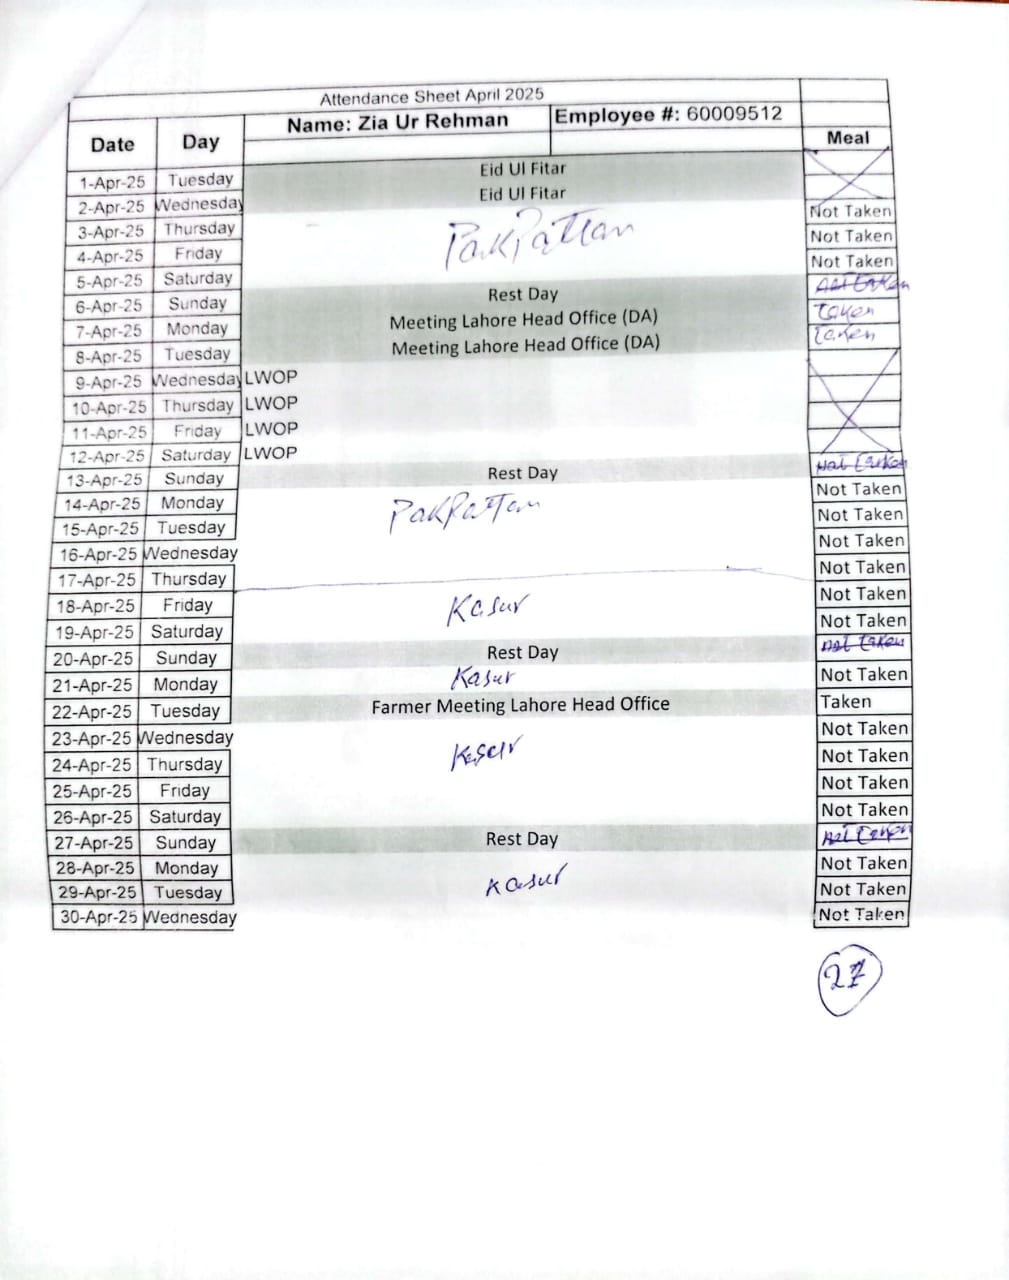 Attendance Sheet April 2025
Name: Zia Ur Rehman Employee #: 60009512
Date Day Meal
1-Apr-25 Tuesday Eid Ul Fitar
2-Apr-25 Wednesday Eid Ul Fitar
3-Apr-25 Thursday Not Taken
4-Apr-25 Friday PakPattan Not Taken
5-Apr-25 Saturday Not Taken
6-Apr-25 Sunday Rest Day Not Taken
7-Apr-25 Monday Meeting Lahore Head Office (DA) Taken
8-Apr-25 Tuesday Meeting Lahore Head Office (DA) Taken
9-Apr-25 Wednesday LWOP
10-Apr-25 Thursday LWOP
11-Apr-25 Friday LWOP
12-Apr-25 Saturday LWOP
13-Apr-25 Sunday Rest Day Not Taken
14-Apr-25 Monday PakPattan Not Taken
15-Apr-25 Tuesday Not Taken
16-Apr-25 Wednesday Not Taken
17-Apr-25 Thursday Not Taken
18-Apr-25 Friday Kasur Not Taken
19-Apr-25 Saturday Not Taken
20-Apr-25 Sunday Rest Day Not Taken
21-Apr-25 Monday Kasur Not Taken
22-Apr-25 Tuesday Farmer Meeting Lahore Head Office Taken
23-Apr-25 Wednesday Not Taken
24-Apr-25 Thursday Kasur Not Taken
25-Apr-25 Friday Not Taken
26-Apr-25 Saturday Not Taken
27-Apr-25 Sunday Rest Day Not Taken
28-Apr-25 Monday Not Taken
29-Apr-25 Tuesday Kasur Not Taken
30-Apr-25 Wednesday Not Taken
27